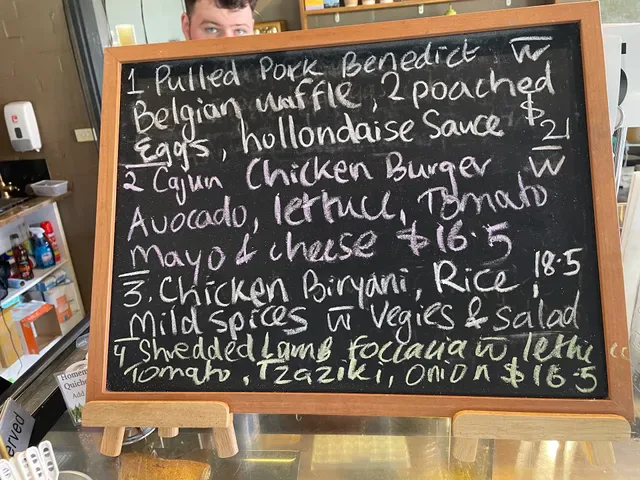 1 Pulled Pork Benedict w̅
Belgian waffle, 2 poached
Eggs, hollondaise Sauce $21
2 Cajun Chicken Burger w̅
Avocado, lettuce, Tomato
Mayo & cheese $16.5
3. Chicken Biryani, Rice, 18.5
Mild spices w̅ Vegies & Salad
4 Shredded Lamb foccacia w̅ lettuce
Tomato, Tzaziki, onion $16.5
Homem
Quiche
Add
erved